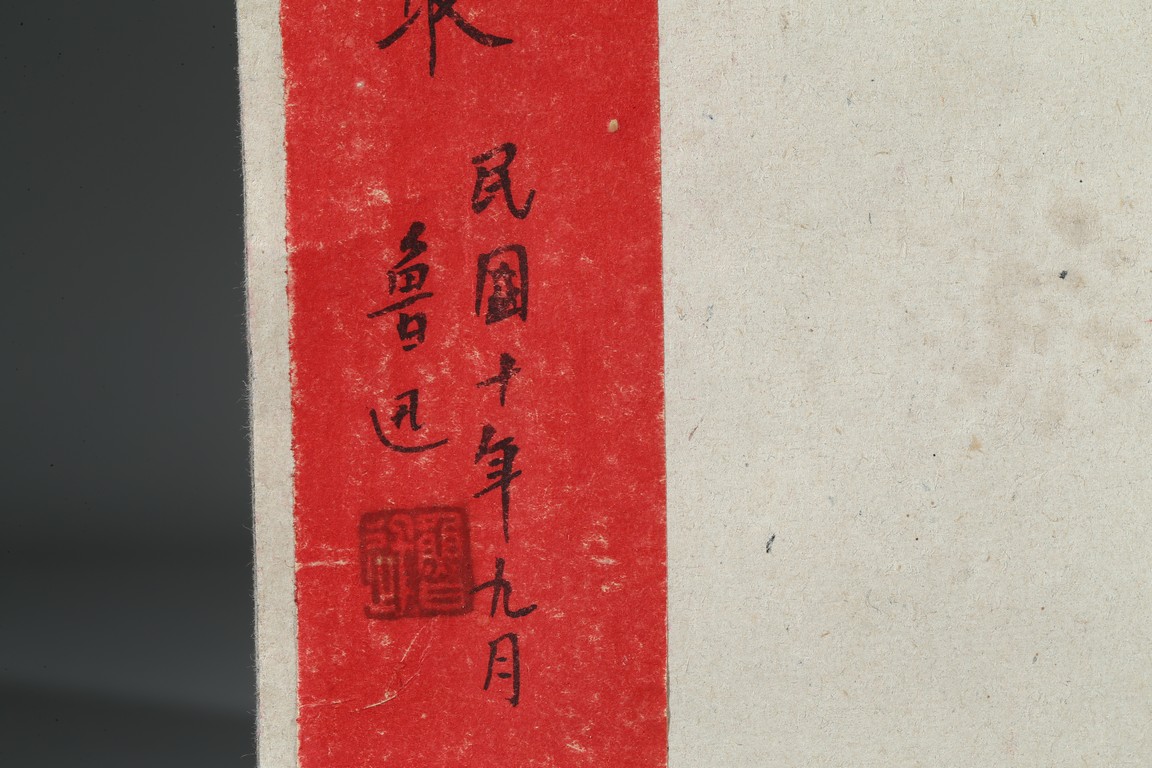 民國十年九月
魯迅